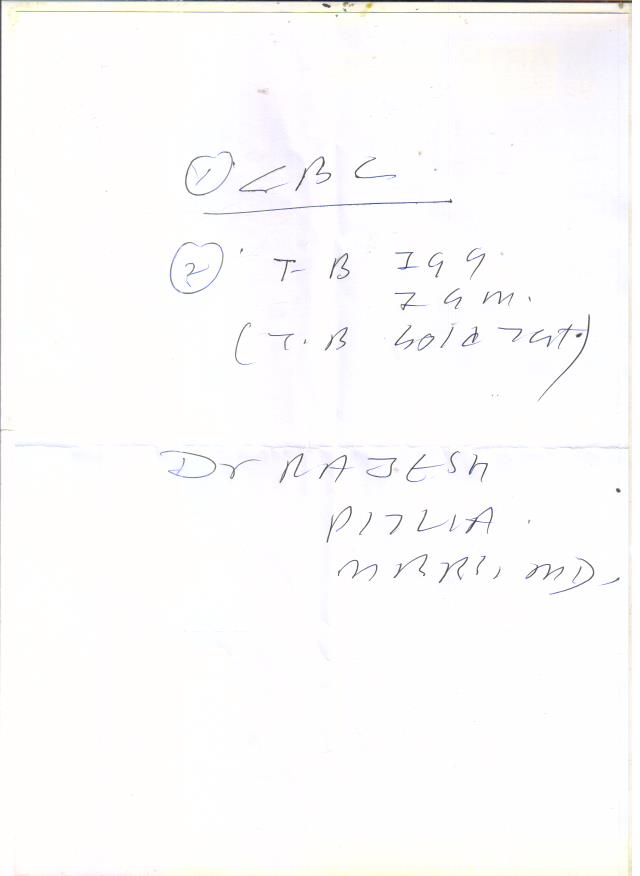 ① CBC
② T B IGG
IGM.
(T.B Gold Test)
Dr RAJESH
PITLIA.
MBBS, MD,